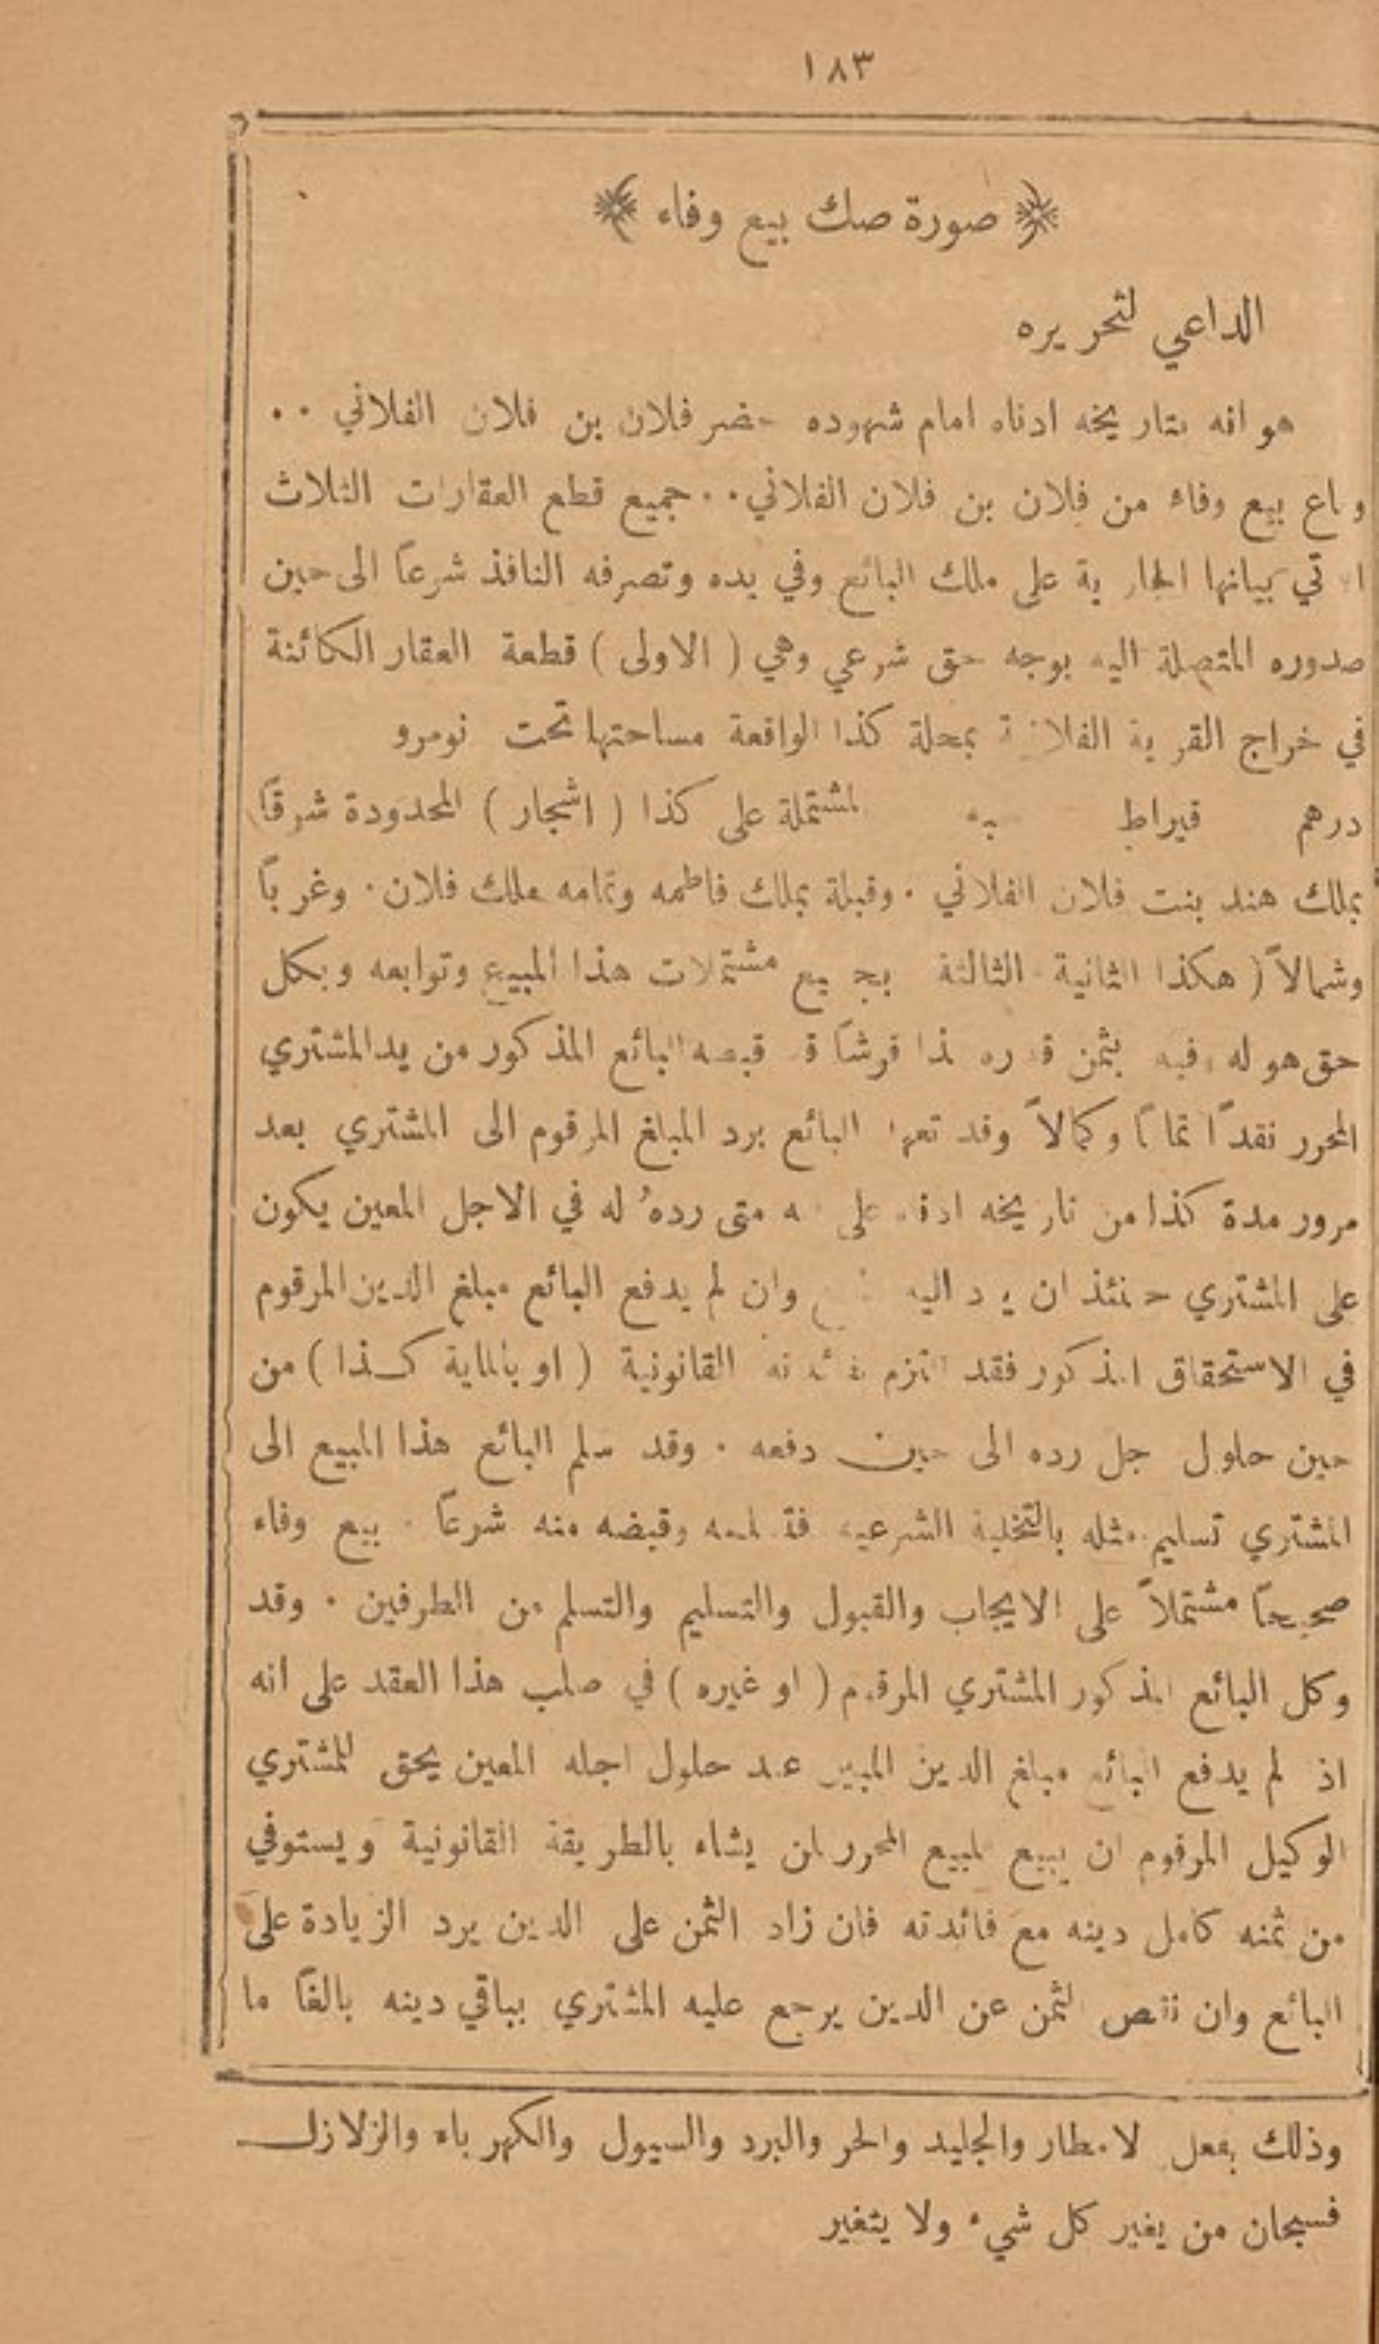 ١٨٣
صورة صك بيع وفاء
الداعي لتحريره
هو انه بتاريخه ادناه امام شهوده حضر فلان بن فلان الفلاني ..
وباع بيع وفاء من فلان بن فلان الفلاني .. جميع قطع العقارات الثلاث
الآتي بيانها الجارية على ملك البائع وفي يده وتصرفه النافذ شرعاً الى حين
صدوره المتصلة اليه بوجه حق شرعي وهي ( الاولى ) قطعة العقار الكائنة
في خراج القرية الفلانية بمحلة كذا الواقعة مساحتها تحت نومرو
درهم قيراط المشتملة على كذا ( اشجار ) المحدودة شرقاً
بملك هند بنت فلان الفلاني . وقبلة بملك فاطمه وتمامه بملك فلان . وغرباً
وشمالاً ( هكذا الثانية الثالثة بجميع مشتملات هذا المبيع وتوابعه وبكل
حق هو له فيه بثمن قدره كذا قرشاً قد قبضه البائع المذكور من يد المشتري
المحرر نقداً تماماً وكمالاً وقد تعهد البائع برد المبلغ المرقوم الى المشتري بعد
مرور مدة كذا من تاريخه ادناه على انه متى ردهُ له في الاجل المعين يكون
على المشتري حينئذ ان يرد اليه وان لم يدفع البائع مبلغ الدين المرقوم
في الاستحقاق المذكور فقد التزم بفائدته القانونية ( او بالماية كذا ) من
حين حلول اجل رده الى حين دفعه . وقد سلم البائع هذا المبيع الى
المشتري تسليم مثله بالتخلية الشرعيه وقبضه منه شرعاً . بيع وفاء
صحيحاً مشتملاً على الايجاب والقبول والتسليم والتسلم من الطرفين . وقد
وكل البائع المذكور المشتري المرقوم ( او غيره ) في صلب هذا العقد على انه
اذا لم يدفع البائع مبلغ الدين المبين عند حلول اجله المعين يحق للمشتري
الوكيل المرقوم ان يبيع المبيع المحرر لمن يشاء بالطريقة القانونية ويستوفي
من ثمنه كامل دينه مع فائدته فان زاد الثمن على الدين يرد الزيادة على
البائع وان نقص الثمن عن الدين يرجع عليه المشتري بباقي دينه بالغاً ما
وذلك بفعل الامطار والجليد والحر والبرد والسيول والكهرباء والزلازل
فسبحان من يغير كل شيء ولا يتغير